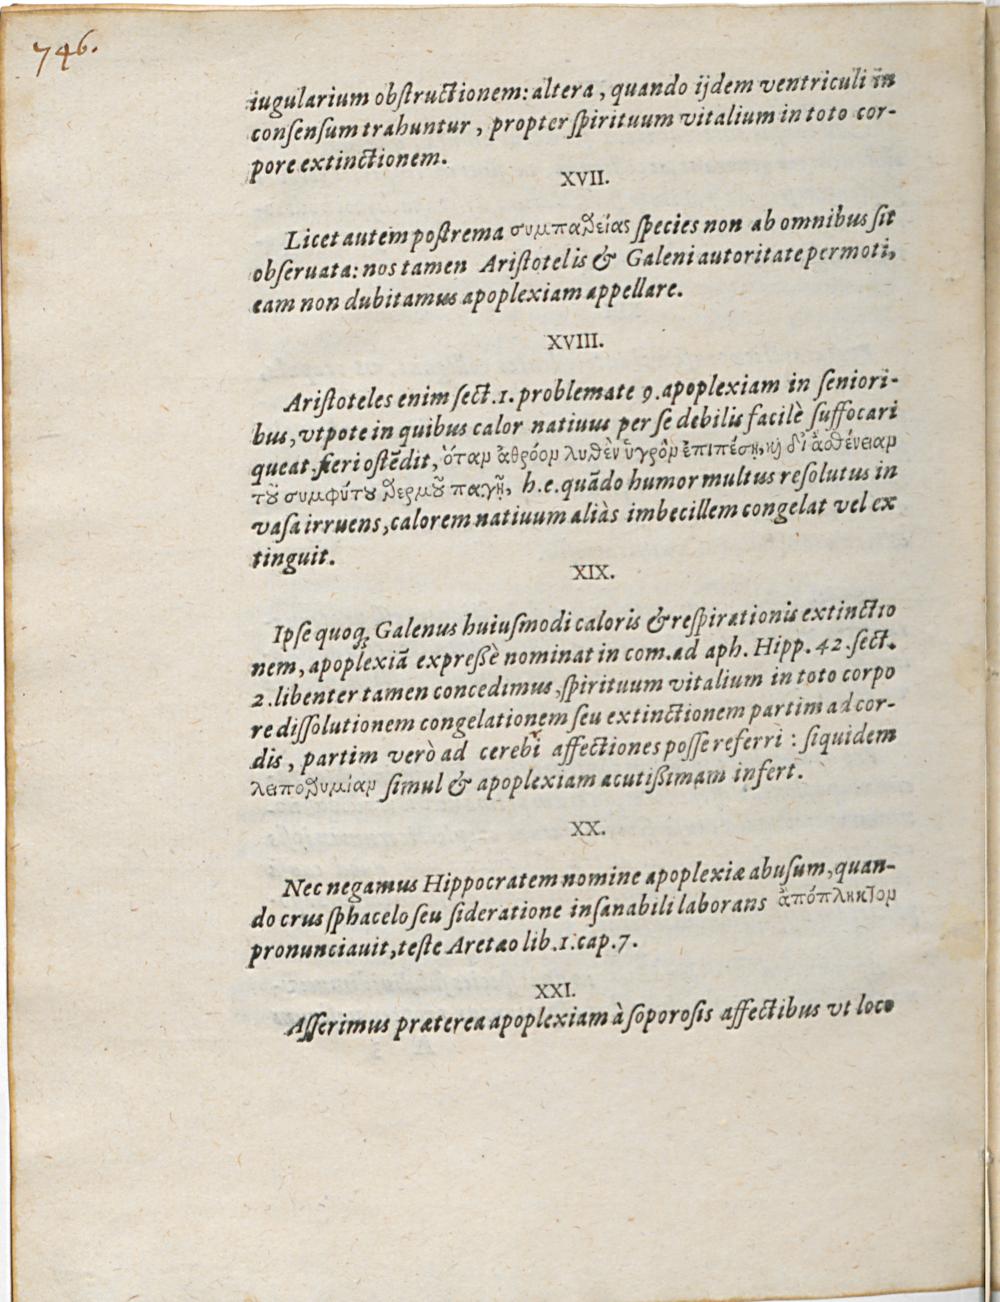 746.
iugularium obſtructionem: altera, quando ijdem ventriculi in
conſenſum trahuntur, propter ſpirituum vitalium in toto cor-
pore extinctionem.
XVII.
Licet autem poſtrema συμπαθείας ſpecies non ab omnibus ſit
obſeruata: nos tamen Ariſtotelis & Galeni autoritate permoti,
eam non dubitamus apoplexiam appellare.
XVIII.
Ariſtoteles enim ſect. 1. problemate 9. apoplexiam in ſeniori-
bus, vtpote in quibus calor natiuus per ſe debilis facilè ſuffocari
queat, fieri oſtēdit, ὅταν ἀθρόον λυθὲν ὑγρὸν ἐπιπέσῃ, καὶ δι' ἀσθένειαν
τοῦ συμφύτου θερμοῦ παγῇ, h.e. quādo humor multus reſolutus in
vaſa irruens, calorem natiuum aliàs imbecillem congelat vel ex
tinguit.
XIX.
Ipſe quoq; Galenus huiuſmodi caloris & reſpirationis extinctio
nem, apoplexiā expreßè nominat in com. ad aph. Hipp. 42. ſect.
2. libenter tamen concedimus, ſpirituum vitalium in toto corpo
re diſſolutionem congelationem ſeu extinctionem partim ad cor-
dis, partim verò ad cerebi affectiones poſſe referri: ſiquidem
λειποθυμίαν ſimul & apoplexiam acutißimam infert.
XX.
Nec negamus Hippocratem nomine apoplexiæ abuſum, quan-
do crus ſphacelo ſeu ſideratione inſanabili laborans ἀπόπληκτον
pronunciauit, teſte Aretæo lib. 1. cap. 7.
XXI.
Aſſerimus præterea apoplexiam à ſoporoſis affectibus vt loco